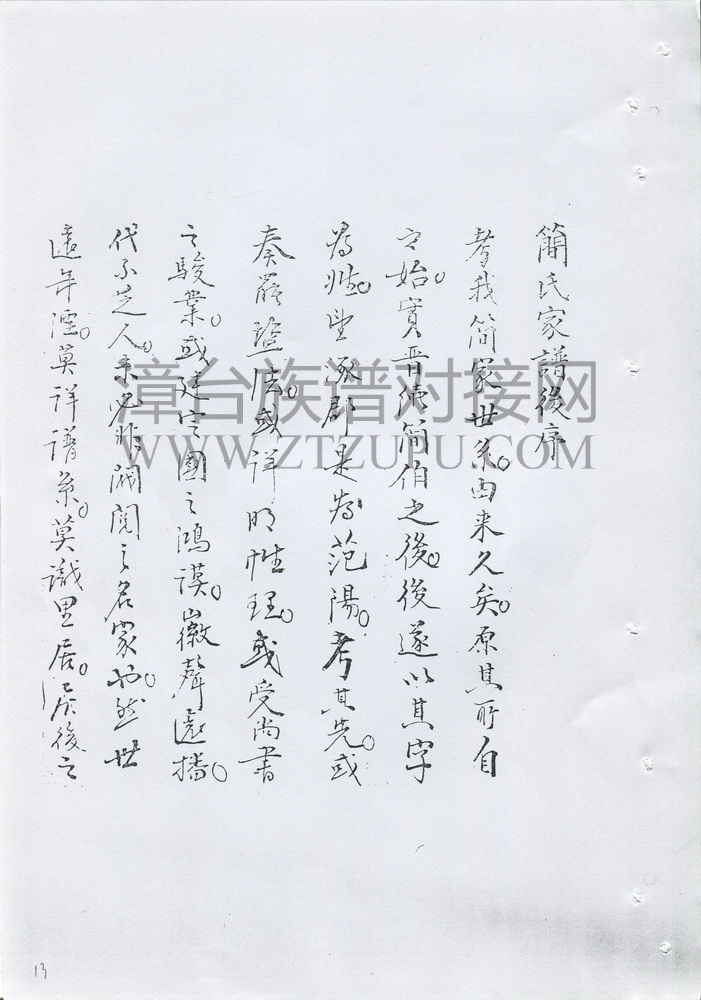 簡氏家譜後序
攷我簡家世系。由来久矣。原其所自
之始。實晋續簡伯之後。後遂以其字
為姓。望涿郡是為范陽。考其先。或
奏罷鹽法。或詳明性理。或受尚書
之駿業。或建定國之鴻謨。徽聲遠播。
代不乏人。未必非閥閱之名家也。然世
遠年湮。莫詳譜系。莫識里居。後之
漳台族谱对接网
WWW.ZTZUPU.COM
13